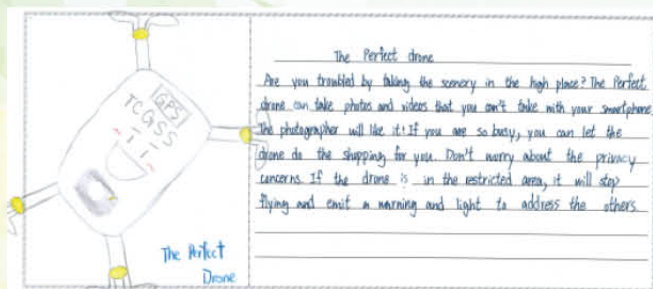 GPS
TCGSS
The Perfect
Drone
The Perfect drone
Are you troubled by taking the scenery in the high place? The Perfect
drone can take photos and videos that you can't take with your smartphone.
The photographer will like it! If you are so busy, you can let the
drone do the shopping for you. Don't worry about the privacy
concerns. If the drone is in the restricted area, it will stop
flying and emit a warning and light to address the others.